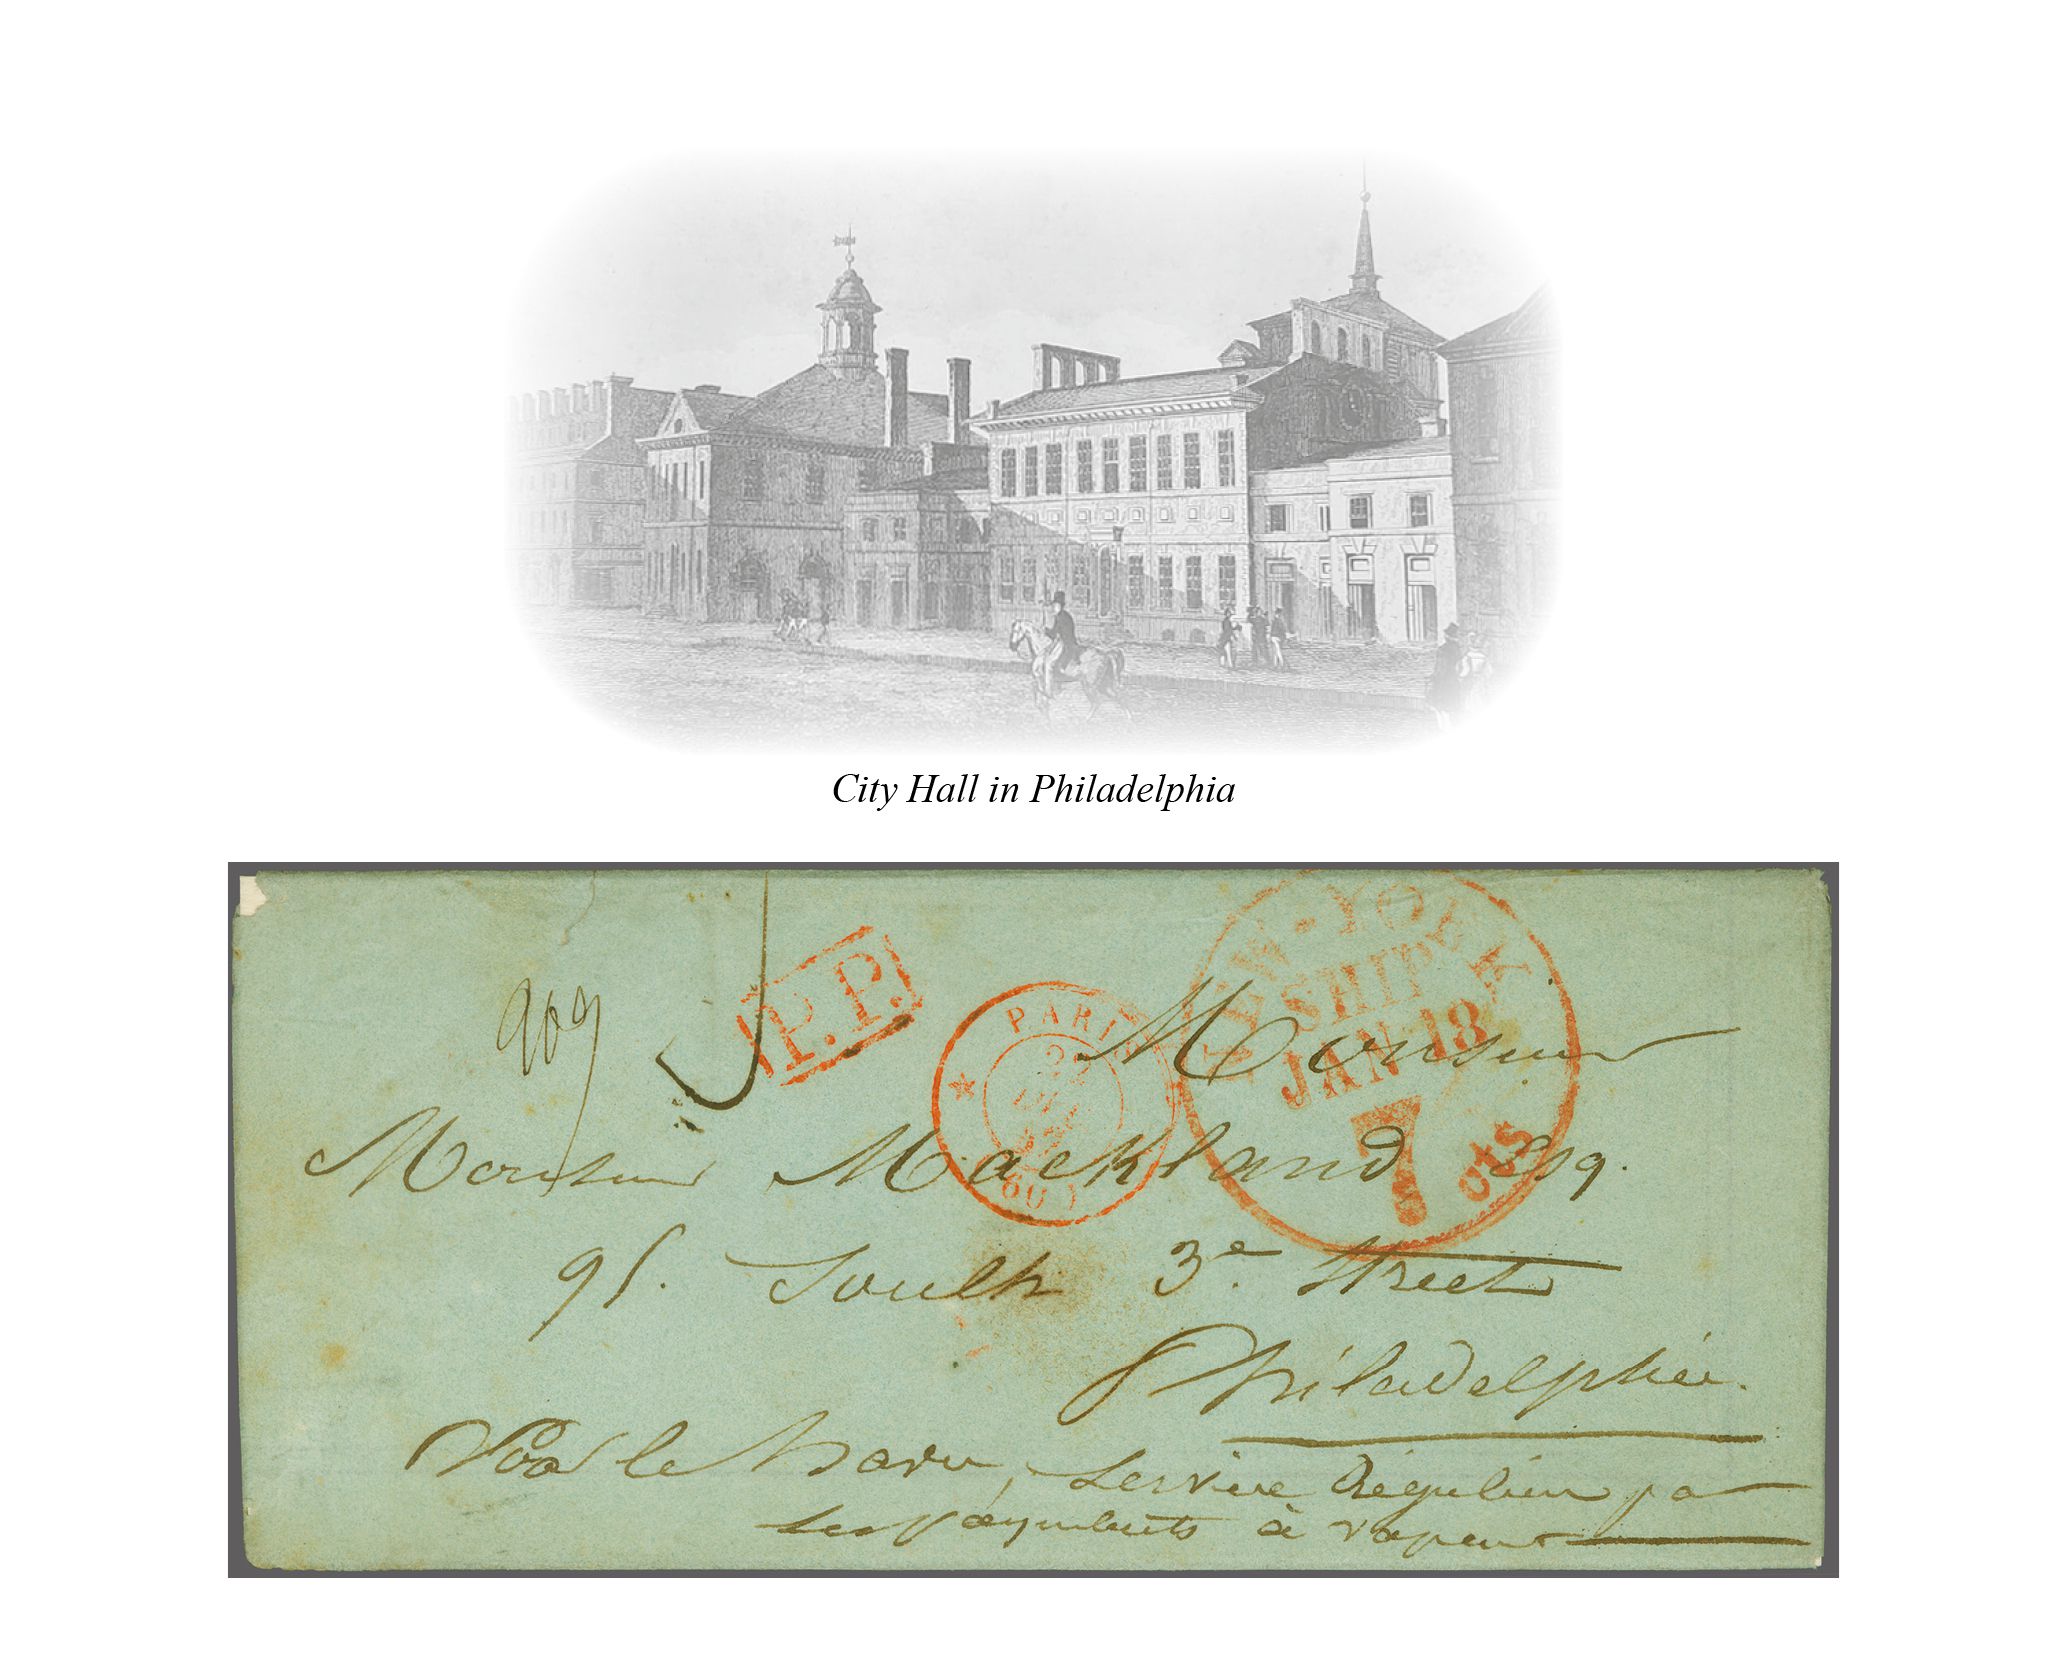 City Hall in Philadelphia
NEW-YORK
SHIP
JAN 18
7
cts
P.P.
PARIS
(60)
Monsieur
Monsieur Mackland Esq.
95. South 3e Street
Philadelphie.
Voie le Havre, Service Régulier par
les Paquebots à vapeur